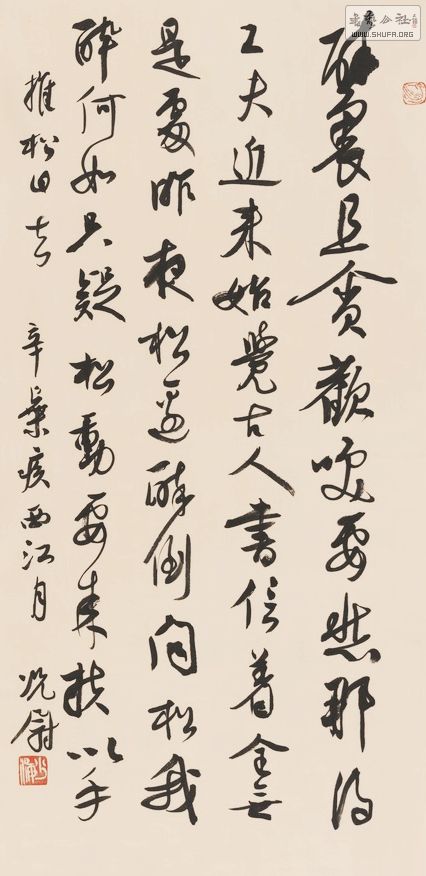 醉裏且貪歡咲要愁那得
工夫近来始覺古人書信着全無
是處昨夜松邊醉倒問松我
醉何如只疑松動要来扶以手
推松曰去 辛棄疾西江月
书艺公社
WWW.SHUFA.ORG